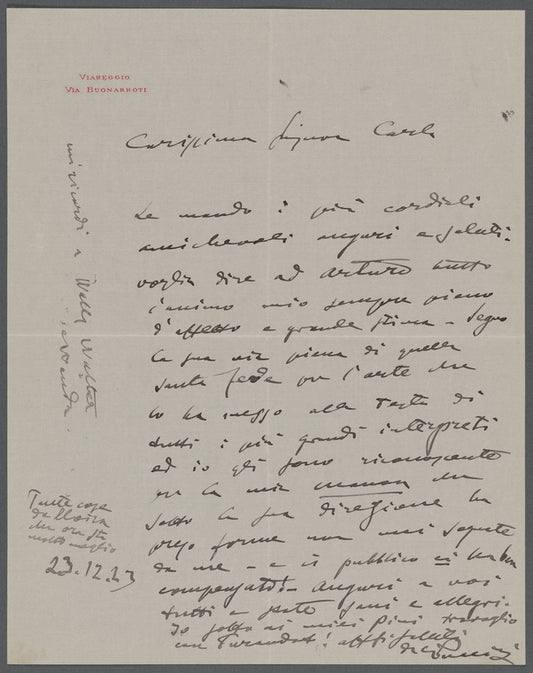 VIAREGGIO
VIA BUONARROTI
Carissima Signora Carla
Le mando i più cordiali
amichevoli auguri e saluti.
voglia dire ad Arturo tutto
l'animo mio sempre pieno
d'affetto e grande stima - Seguo
la sua via piena di quella
santa fede per l'arte che
lo ha messo alla testa di
tutti i più grandi interpreti
ed io gli sono riconoscente
per la mia manon che
sotto la sua direzione ha
preso forme non mai sapute
da me - e il pubblico ci ha
compensati! - auguri a voi
tutti e state sani e allegri.
Io sotto ai miei pini travaglio
con Turandot!
Puccini
mi ricordi a Wally Walter
e Wanda.
Tante cose
da Elvira
che ora sta
molto meglio
23.12.23